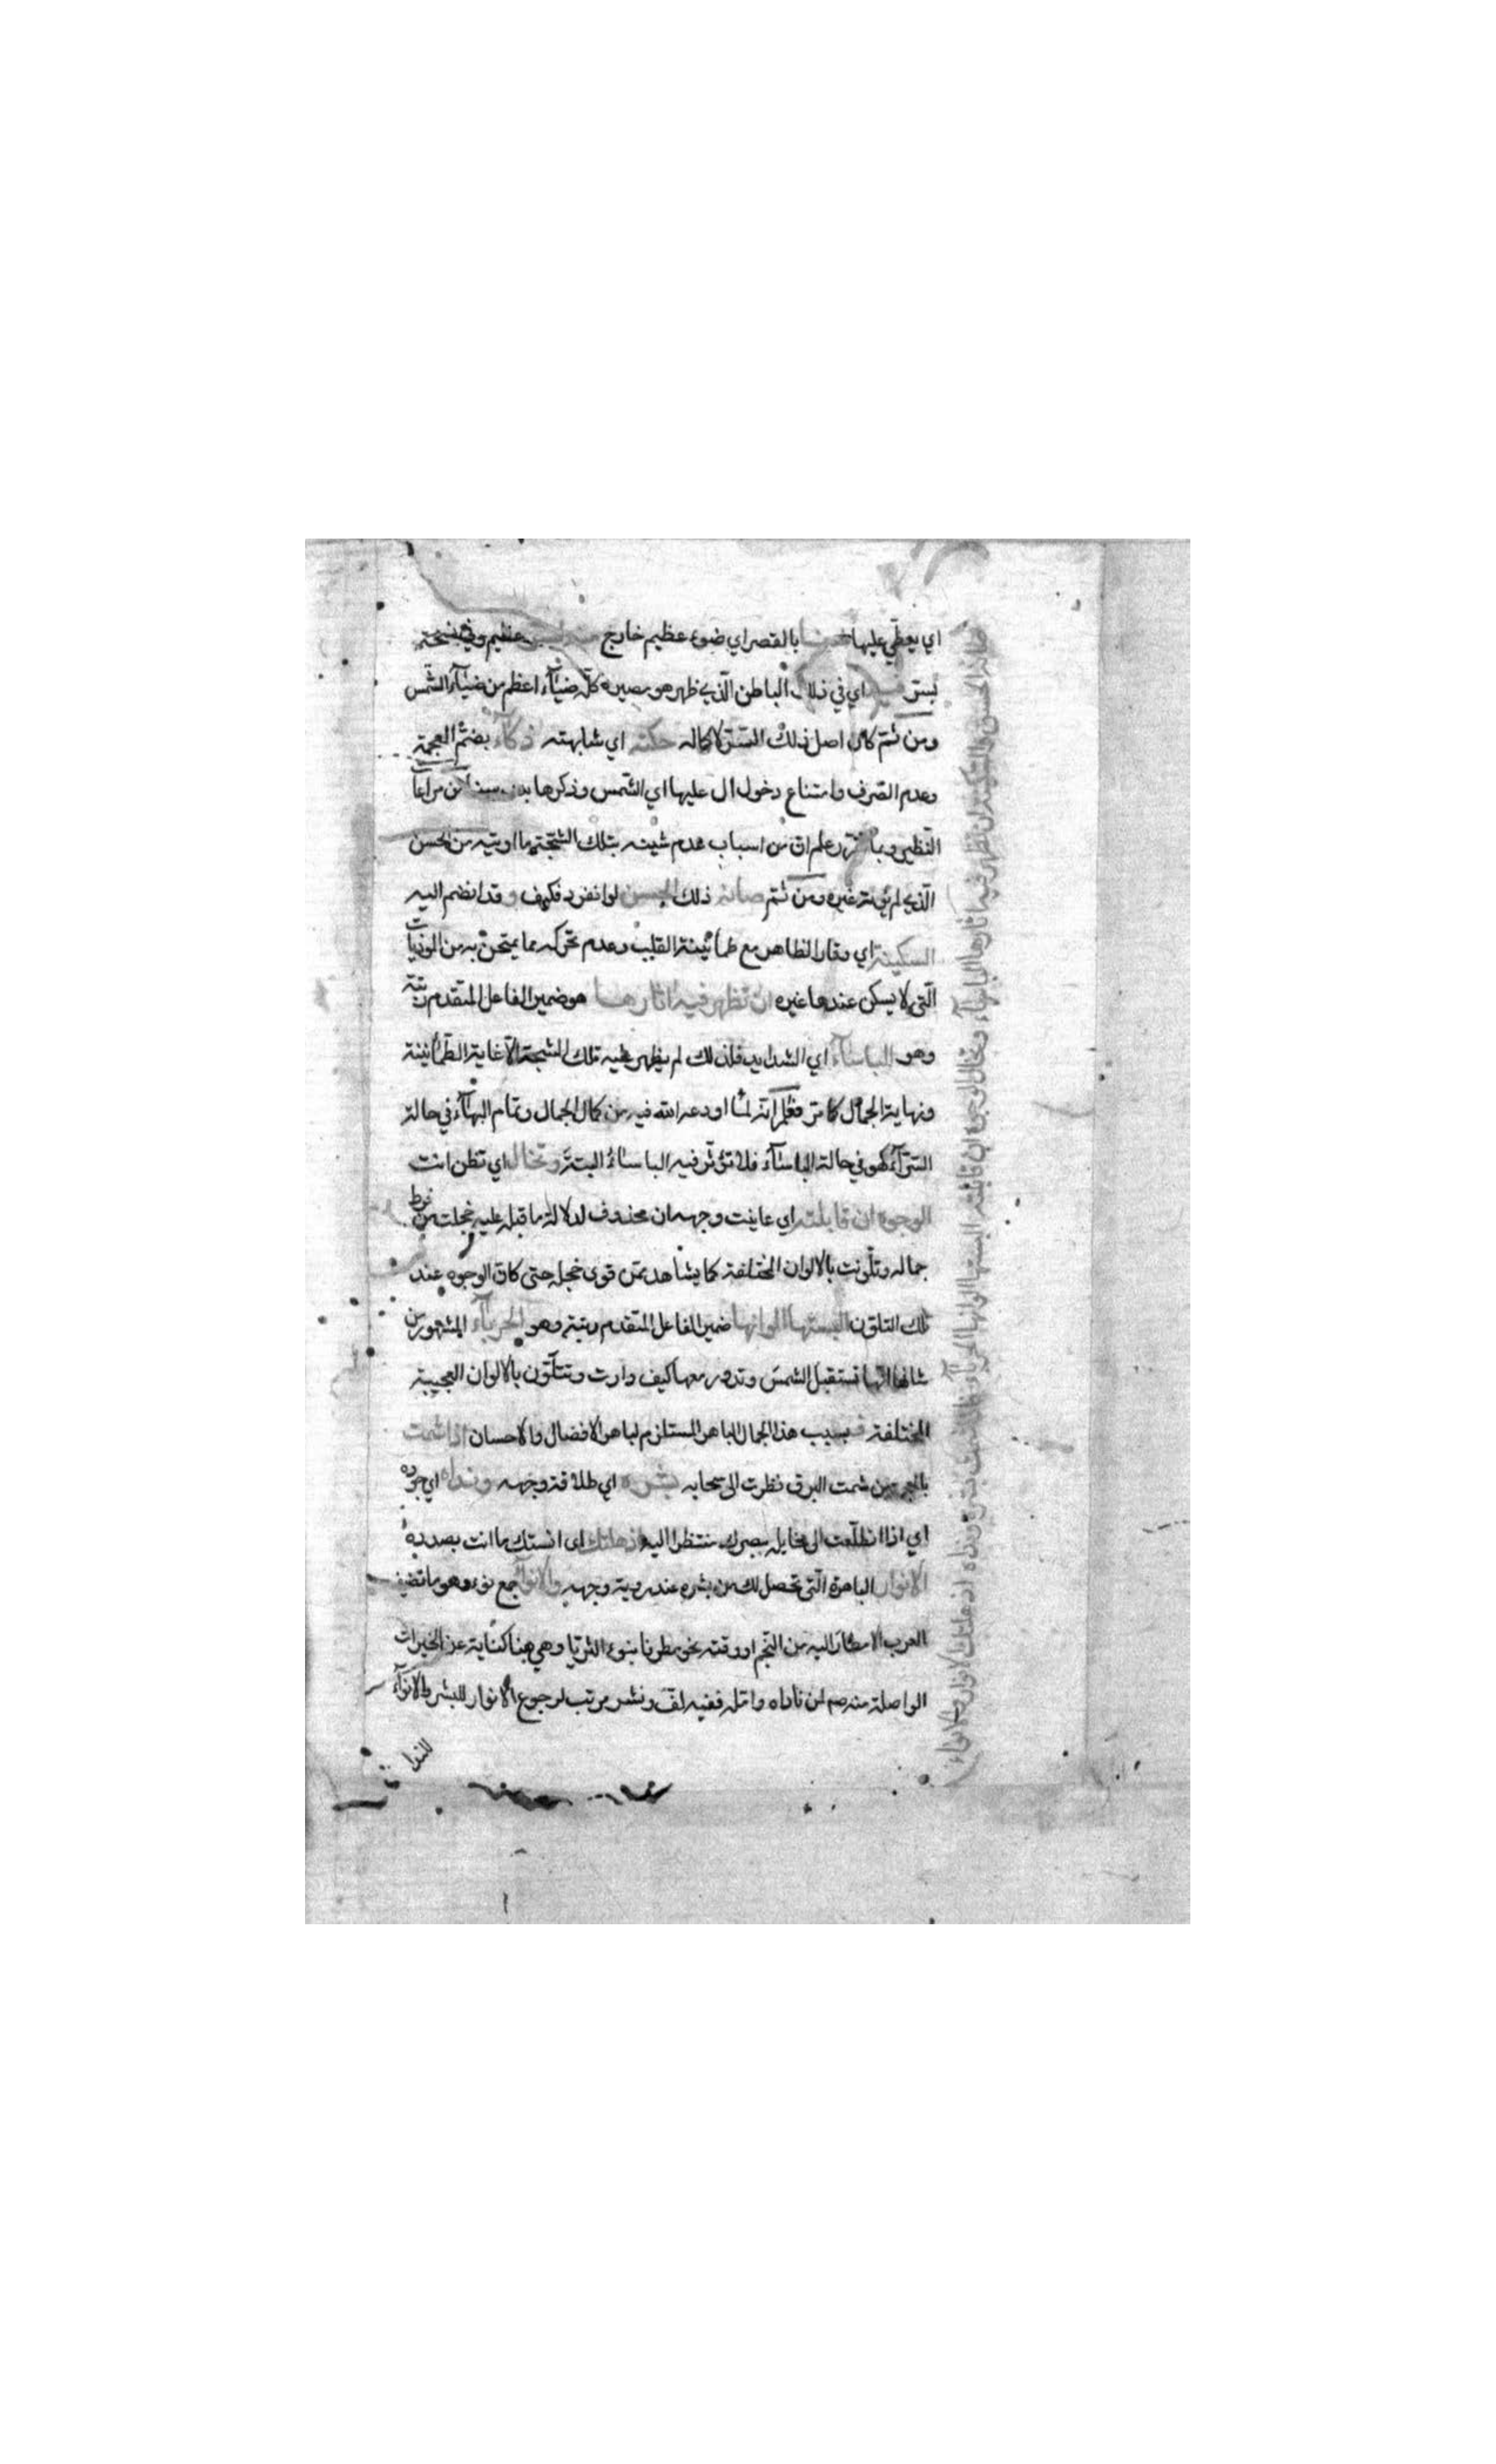 اي يغطي عليها بالقصر اي ضوء عظيم خارج عظيم وفي نسخة
بستر اي في ذلك الباطن الذي ظهر هو بصيره كل ضياء اعظم من ضياء الشمس
ومن ثم كان اصل ذلك الستر لاكماله حكته اي شابهته ذكاء بضم المعجمة
وعدم الصرف وامتناع دخول ال عليها اي الشمس وذكرها مراعاة
النظير وبما علم ان من اسباب عدم شينه بتلك الشجة ما اوتيه من الحسن
الذي لم يؤته غيره ومن ثم صانه ذلك الحسن لو انفرد فكيف وقد انضم اليه
السكينة اي وقار الظاهر مع طمأنينة القلب وعدم تحركه مما يمتحن به من الموذيات
التي لا يسكن عندها غيره ان تظهر فيه اثارها هو ضمير الفاعل المتقدم رتبة
وهو الباساء اي الشدايد فلذلك لم يظهر عليه تلك الشجة الا غاية الطمأنينة
ونهاية الجمال كما مر فعلم انه لما اودعه الله فيه من كمال الجمال وتمام البهاء في حالة
السراء كهو في حالة الباساء فلا تؤثر فيه الباساء البتة وتخال اي تظن انت
الوجوه ان قابلته اي عاينت وجهه ان محذوف لدلالة ما قبله عليه خجلت من فرط
جماله وتلونت بالالوان المختلفة كما يشاهد ممن قوى خجله حتى كان الوجوه عند
ذلك التلون البستها الوانها ضمير الفاعل المتقدم رتبة وهو الحرباء المشهور من
شانها انها تستقبل الشمس وتدور معها كيف دارت وتتلون بالالوان العجيبة
المختلفة فبسبب هذا الجمال الباهر المستلزم لباهر الافضال والاحسان اذا شمت
بالمعجمة من شمت البرق نظرت الى سحابه بشره اي طلاقة وجهه ونداه اي جوده
اي اذا تطلعت الى مخايله ببصرك منتظرا اليه اذهلتك اي انستك ما انت بصدده
الانوار الباهرة التي تحصل لك من بشره عند روية وجهه والانواء جمع نوء وهو ما تضيف
العرب الامطار اليه من النجم او وقته نحو مطرنا بنوء الثريا وهي هنا كناية عن الخيرات
الواصلة منه لمن ناداه وامله ففيه لف ونشر مرتب لرجوع الانوار للبشر والانواء
للندا
صانه الحسن والسكينة ان تظهر فيه اثارها الباساء وتخال الوجوه ان قابلته البستها الوانها الحرباء فاذا شمت بشره ونداه اذهلتك الانوار والانواء